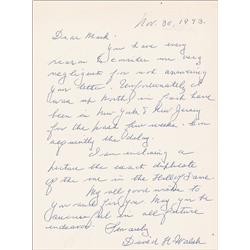 Nov. 30, 1973.
Dear Mark:
You have every
reason to consider me very
negligent for not answering
your letter. Unfortunately I
was up North in fact have
been in New York & New Jersey
for the past few weeks. Con
sequently the delay.
I am enclosing a
picture the exact duplicate
of the one in the Hall of Fame.
My all good wishes to
you and for you. May you be
successful in all future
endeavor.
Sincerely
David H. Walsh